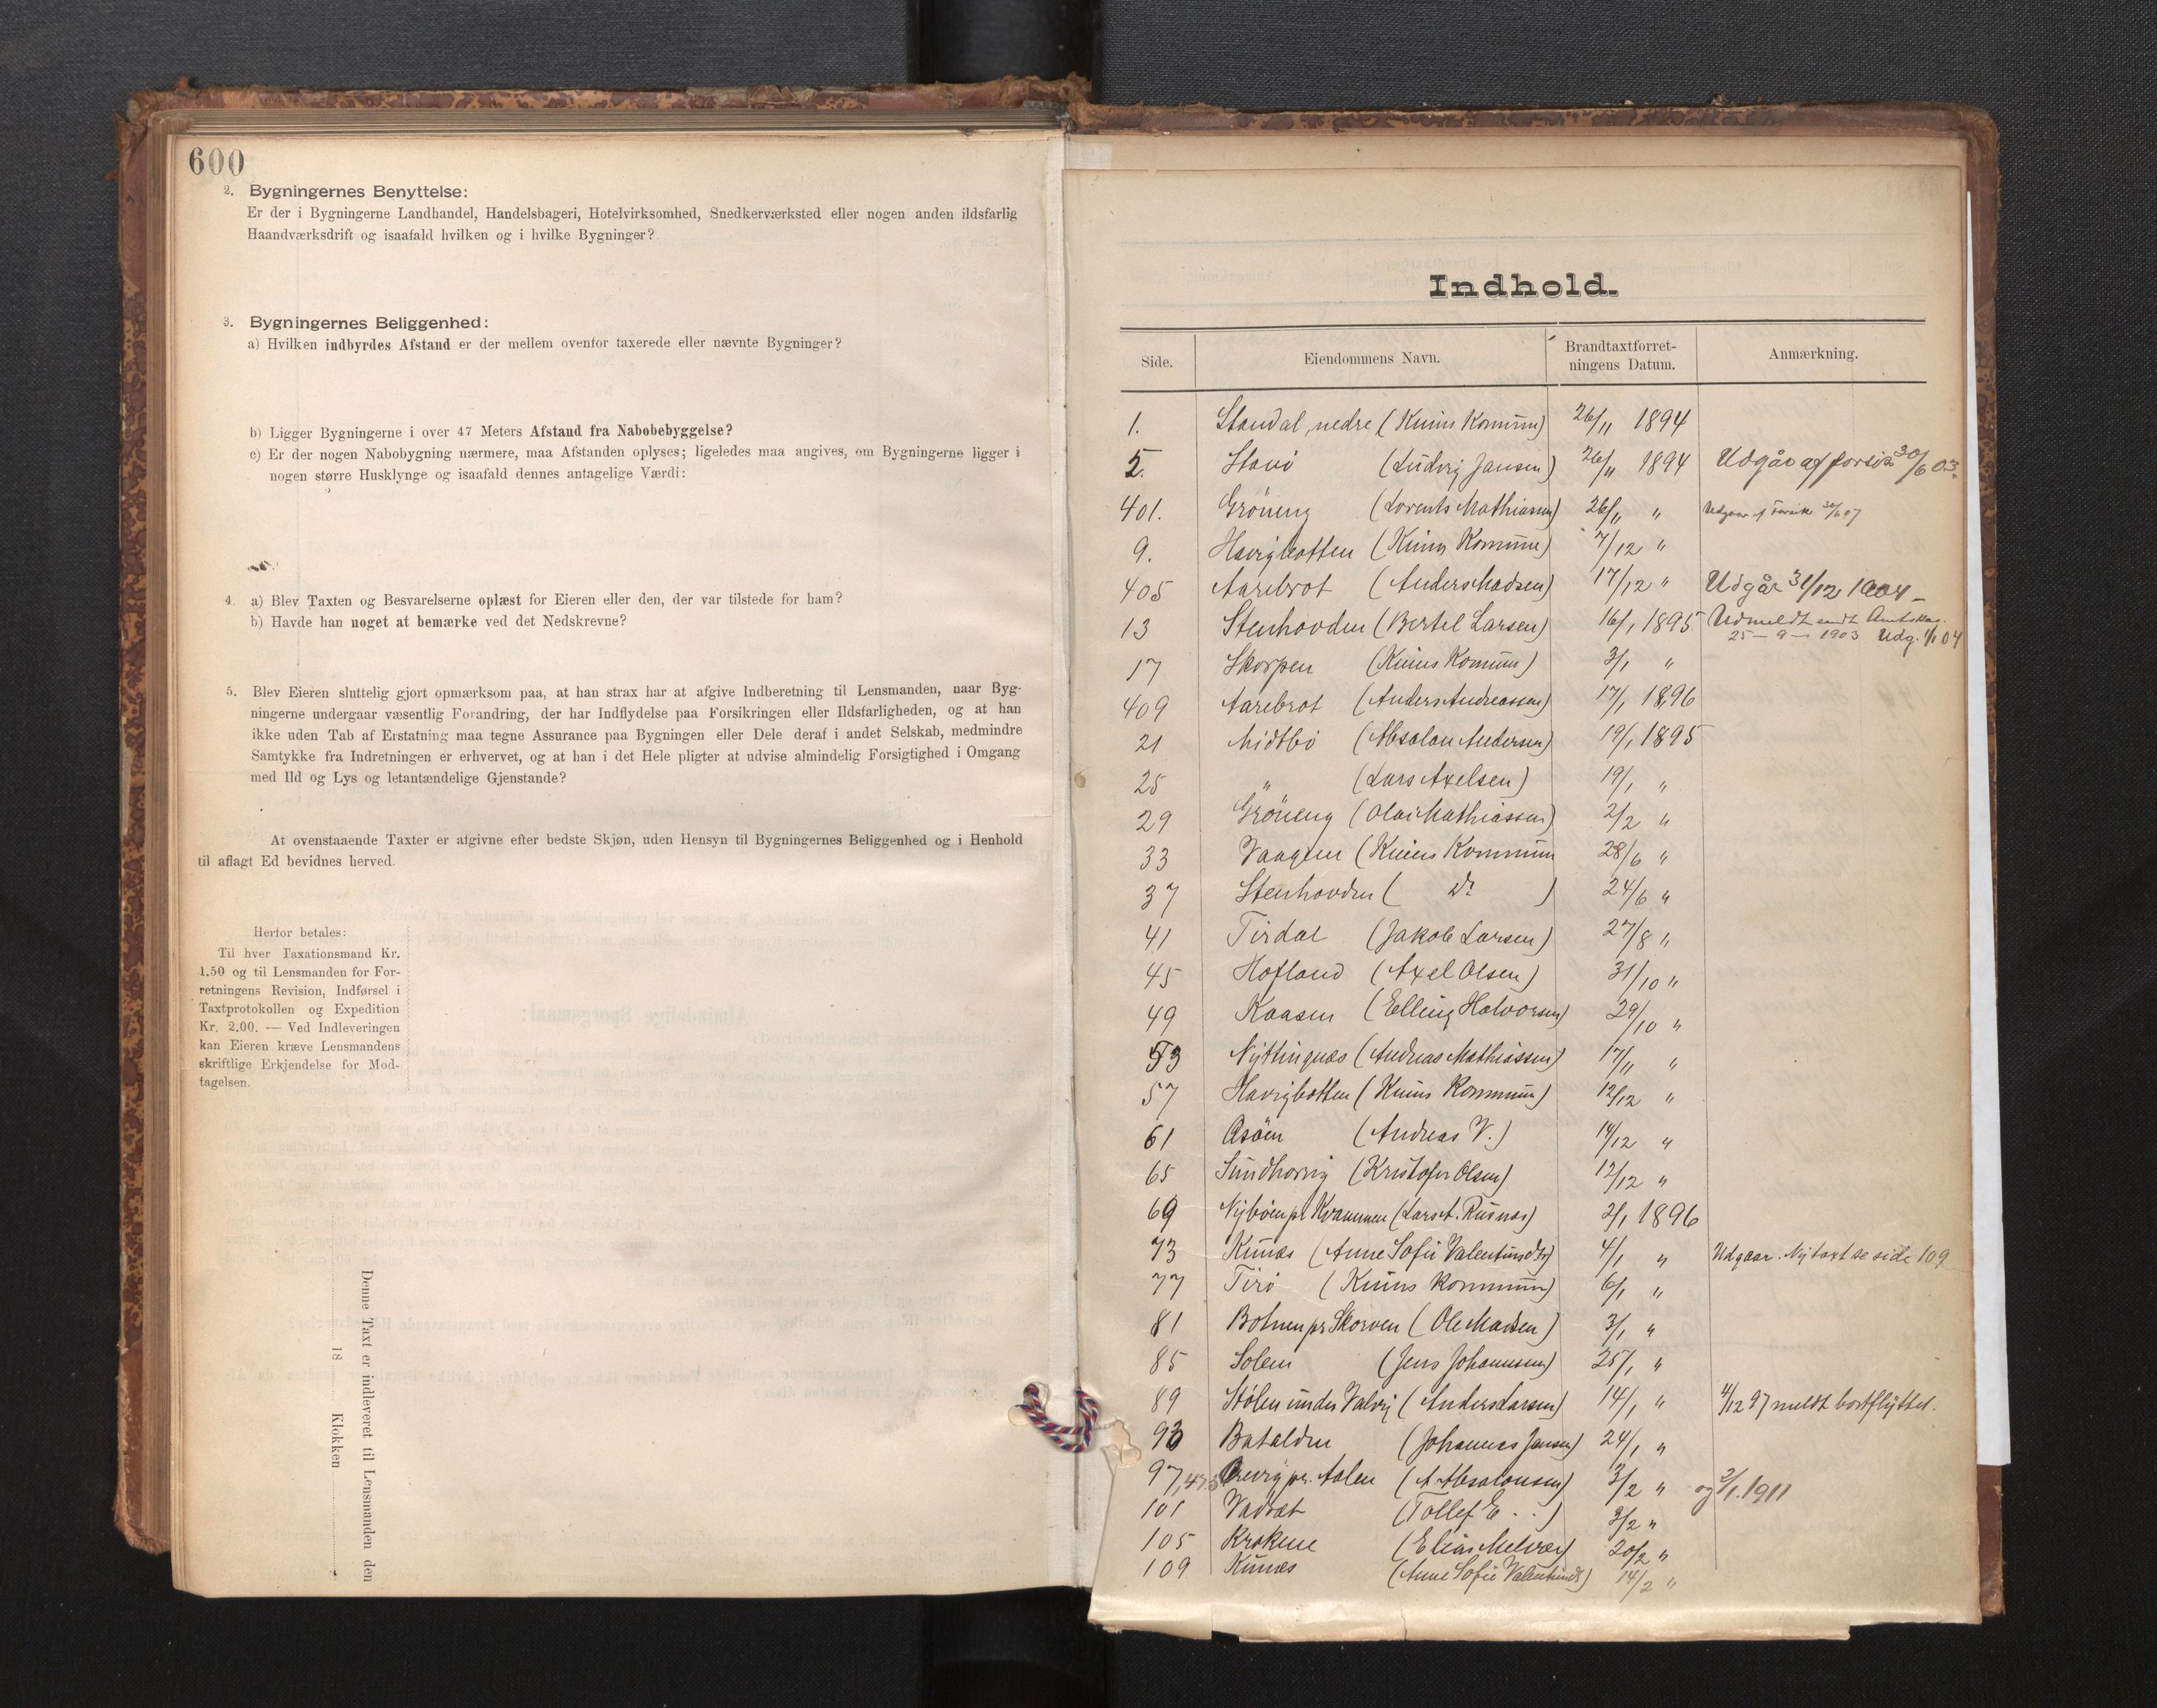 600
2. Bygningernes Benyttelse:
Er der i Bygningerne Landhandel, Handelsbageri, Hotelvirksomhed, Snedkerværksted eller nogen anden ildsfarlig
Haandværksdrift og isaafald hvilken og i hvilke Bygninger?
3. Bygningernes Beliggenhed:
a) Hvilken indbyrdes Afstand er der mellem ovenfor taxerede eller nævnte Bygninger?
b) Ligger Bygningerne i over 47 Meters Afstand fra Nabobebyggelse?
c) Er der nogen Nabobygning nærmere, maa Afstanden oplyses; ligeledes maa angives, om Bygningerne ligger i
nogen større Husklynge og isaafald dennes antagelige Værdi:
4. a) Blev Taxten og Besvarelserne oplæst for Eieren eller den, der var tilstede for ham?
b) Havde han noget at bemærke ved det Nedskrevne?
5. Blev Eieren sluttelig gjort opmærksom paa, at han strax har at afgive Indberetning til Lensmanden, naar Byg-
ningerne undergaar væsentlig Forandring, der har Indflydelse paa Forsikringen eller Ildsfarligheden, og at han
ikke uden Tab af Erstatning maa tegne Assurance paa Bygningen eller Dele deraf i andet Selskab, medmindre
Samtykke fra Indretningen er erhvervet, og at han i det Hele pligter at udvise almindelig Forsigtighed i Omgang
med Ild og Lys og letantændelige Gjenstande?
At ovenstaaende Taxter er afgivne efter bedste Skjøn, uden Hensyn til Bygningernes Beliggenhed og i Henhold
til aflagt Ed bevidnes herved.
Herfor betales:
Til hver Taxationsmand Kr.
1.50 og til Lensmanden for For-
retningens Revision, Indførsel i
Taxtprotokollen og Expedition
Kr. 2.00. — Ved Indleveringen
kan Eieren kræve Lensmandens
skriftlige Erkjendelse for Mod-
tagelsen.
Denne Taxt er indleveret til Lensmanden den
18 Klokken
Indhold.
Side. Eiendommens Navn. Brandtaxtforret-
ningens Datum. Anmærkning.
1. Standal, nedre (Kinns Komūn) 26/11 1894
5. Stavø (Ludvig Jansen) 26/11 1894 Udgår af forsik 30/6 03.
401. Grøneng (Lorents Mathiasen) 26/11 " Udgaar af Forsik 30/6 07
9. Havigbotten (Kinns Komūne) 7/12 "
405 Aarebrot (Anders Madsen) 17/12 " Udgår 31/12 1904 –
13 Stenhovden (Bertel Larsen) 16/1 1895 Udmeldt sendt Amtskas.
25 – 9 – 1903 Udg. 1/1 04
17 Skorpen (Kinns Komūn) 3/1 "
409 Aarebrot (Anders Andreassen) 17/1 1896
21 Midtbø (Absalon Andersen) 19/1 1895
25 " (Lars Axelsen) 19/1 "
29 Grøneng (Olai Mathiassen) 2/2 "
33 Vaagen (Kinns Kommun 28/6 "
37 Stenhovden ( Do ) 24/6 "
41 Tirdal (Jakob Larsen) 27/8 "
45 Hofland (Axel Olsen) 31/10 "
49 Kaasen (Elling Halvorsen) 29/10 "
53 Nyttingnæs (Andreas Mathiassen) 17/11 "
57 Havigbotten (Kinns Kommun) 12/12 "
61 Asøen (Andreas V.) 14/12 "
65 Sundhovig (Kristofer Olsen) 12/12 "
69 Nybøen pr Kvammen (Lars A. Rusnæs) 2/1 1896
73 Kinnæs (Anne Sofie Valentinsdtr) 4/1 " Udgaar. Ny taxt se side 109
77 Tirø (Kinns Kommūn) 6/1 "
81 Botnen pr Skorven (Ole Madsen) 3/1 "
85 Solem (Jens Johannesen) 25/1 "
89 Stølen under Valvig (Anders Larsen) 14/1 " 4/12 97 meldt bortflyttet.
93 Batalden (Johannes Jansen) 24/1 "
97, 473 Brevig pr. Aalen (A Absalonsen) 3/2 " og 2/1. 1911
101 Vadset (Tollef E . . ) 3/2 "
105 Krokene (Elias Melvær) 20/2 "
109 Kinnæs (Anne Sofie Valentinsd) 14/2 "